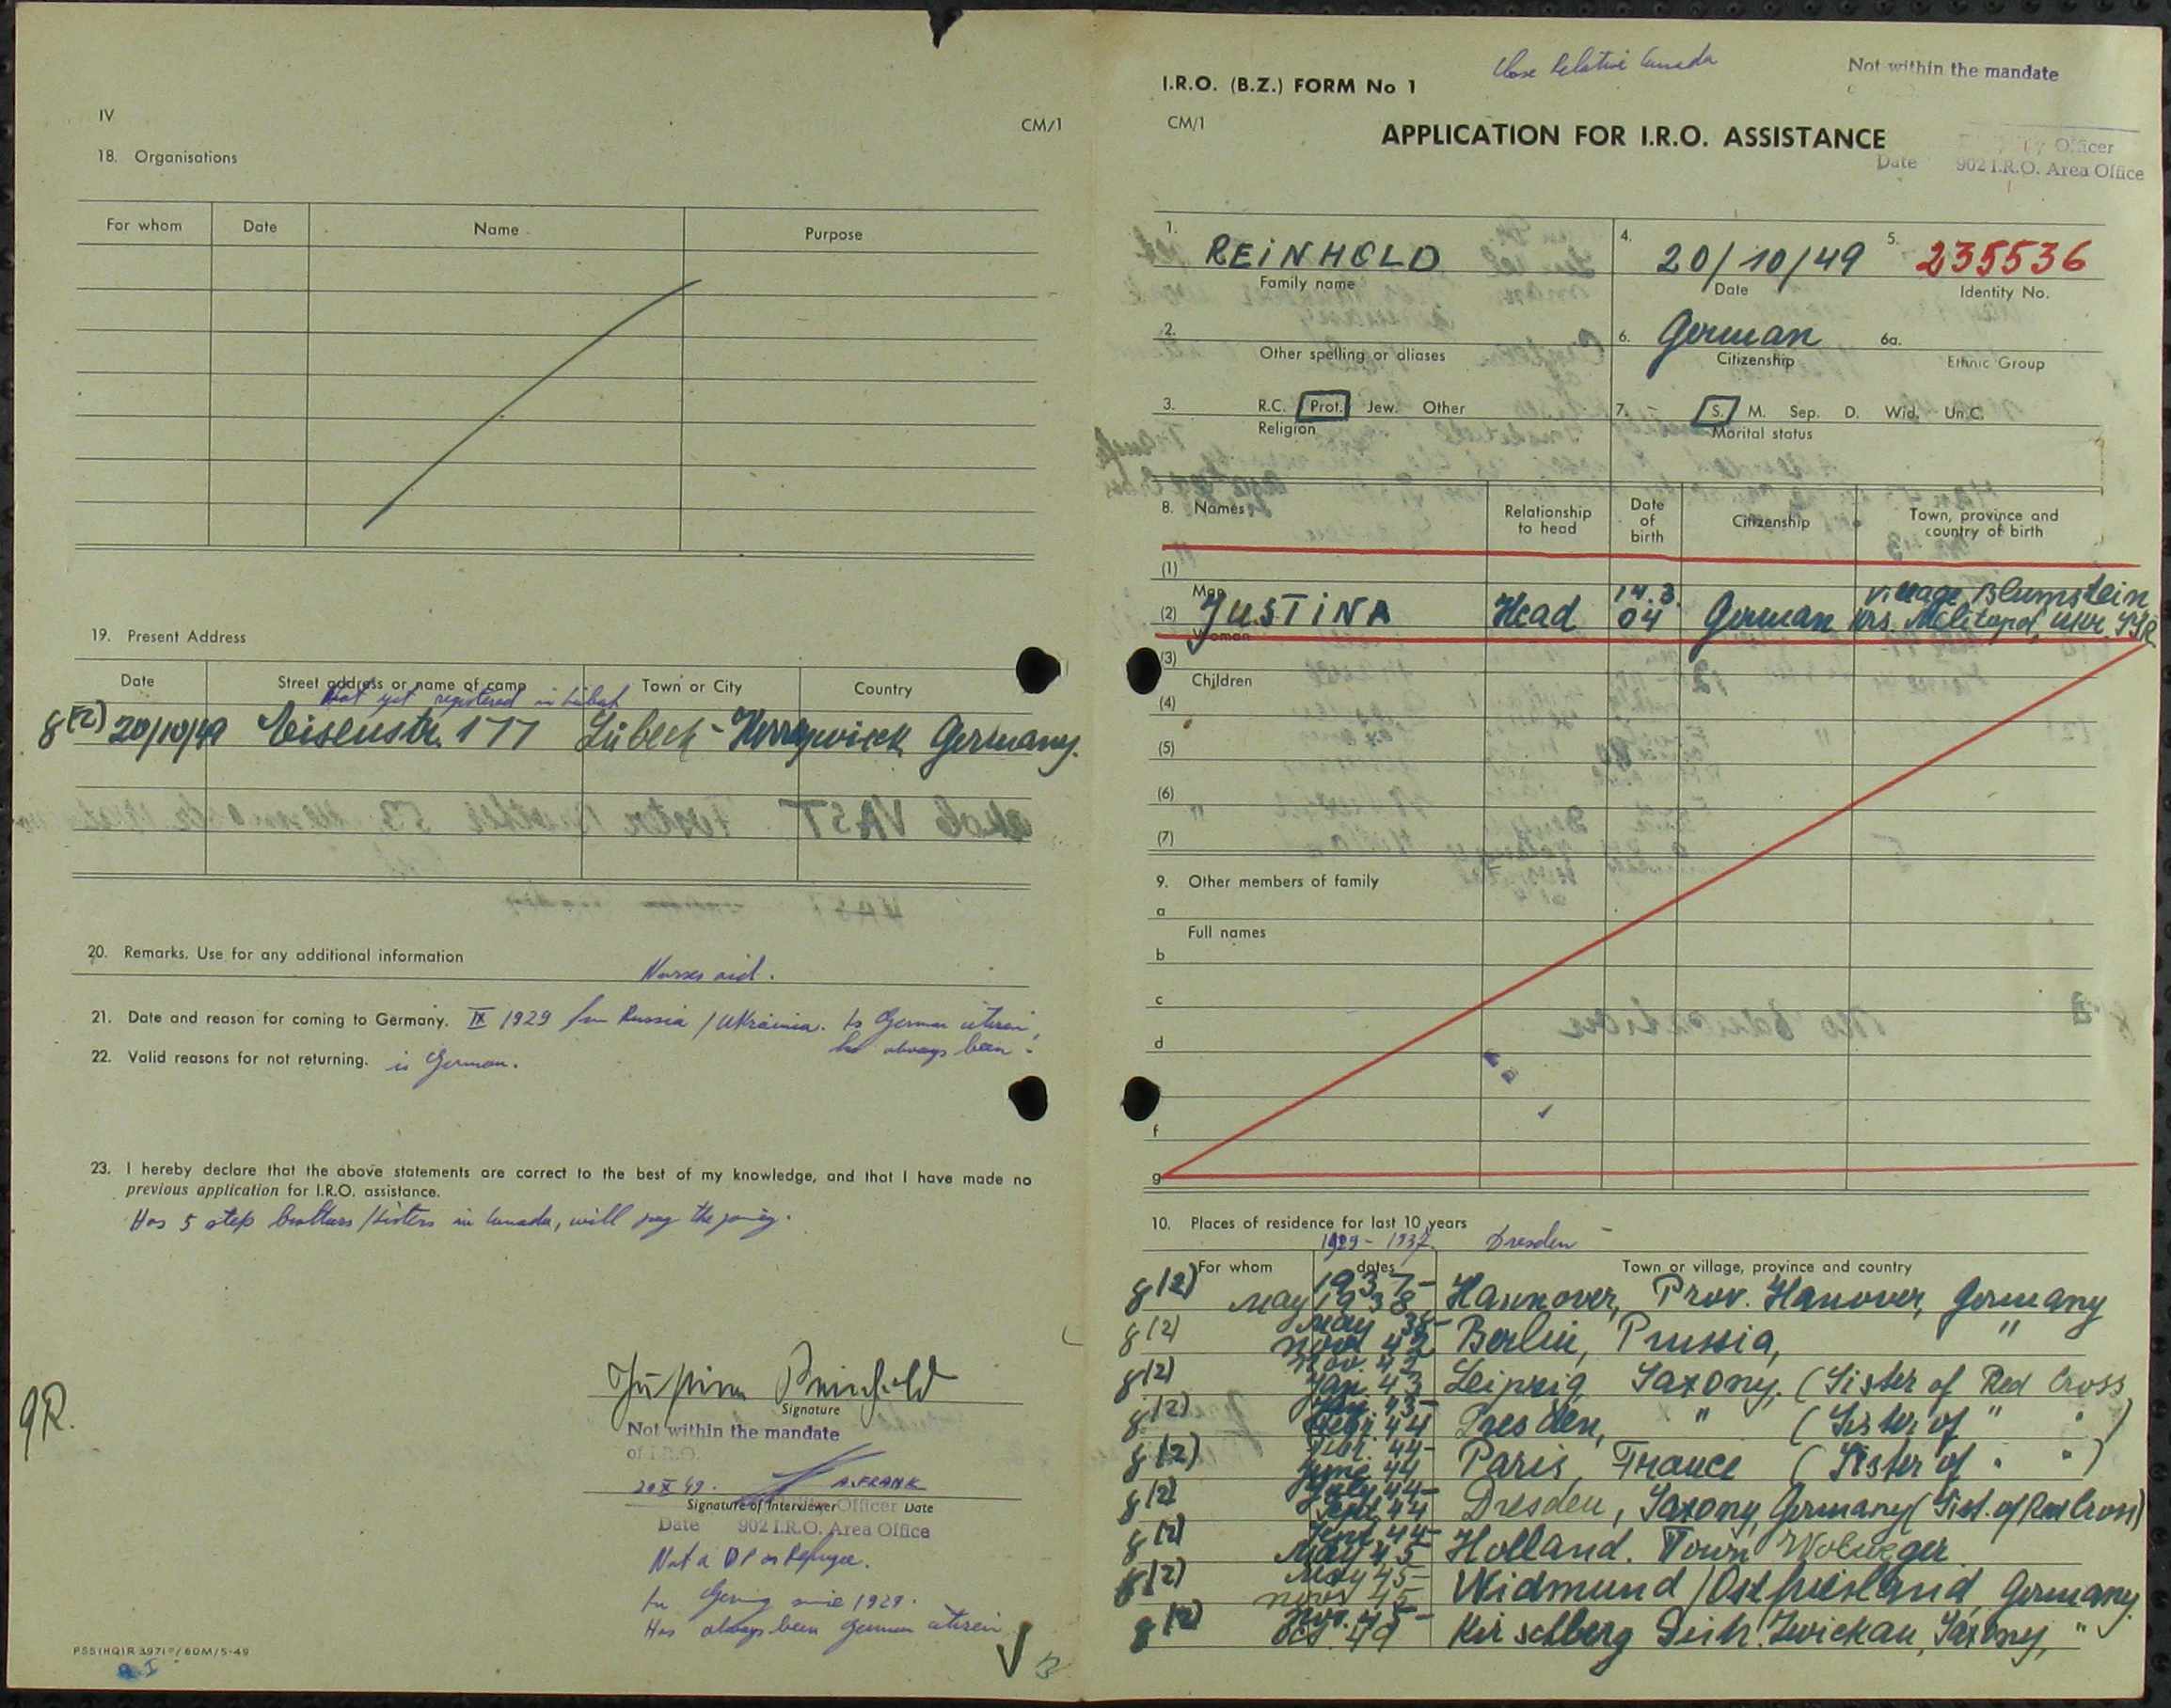 IV
CM/1
18. Organisations
For whom Date Name Purpose
19. Present Address
Date Street address or name of camp Town or City Country
Not yet registered in Lübeck
8(2) 20/10/49 Eisenstr. 177 Lübeck - Herrenwieck Germany.
20. Remarks. Use for any additional information
Nurses aid.
21. Date and reason for coming to Germany. IX 1929 from Russia / Ukrainia. Is German citizen,
has always been.
22. Valid reasons for not returning. is German.
23. I hereby declare that the above statements are correct to the best of my knowledge, and that I have made no
previous application for I.R.O. assistance.
Has 5 step brothers / sisters in Canada, will pay the
9R.
Justina Reinhold
Signature
Not within the mandate
of I.R.O.
20 X 49. A. FRANK
Signature of Interviewer Officer Date
Date 902 I.R.O. Area Office
Not a DP or Refugee.
In Germany since 1929.
Has always been German citizen
PSS(HQ)R 3971
/60M/5-49
Close Relative Canada
Not within the mandate
I.R.O. (B.Z.) FORM No 1
CM/1
APPLICATION FOR I.R.O. ASSISTANCE
Officer
Date 902 I.R.O. Area Office
1. REINHOLD 4. 20/10/49 5. 235536
Family name Date Identity No.
2. 6. German 6a.
Other spelling or aliases Citizenship Ethnic Group
3. R.C. Prot. Jew. Other 7. S. M. Sep. D. Wid. Un.C.
Religion Marital status
8. Names Relationship to head Date of birth Citizenship Town, province and country of birth
(1)
Man
(2) JUSTINA Head 14.3.04 German village Blumstein Krs. Melitopol, Ukr. SSR
Woman
(3)
Children
(4)
(5)
(6)
(7)
9. Other members of family
a
Full names
b
c
d
f
g
10. Places of residence for last 10 years
1929 - 1937 Dresden
For whom dates Town or village, province and country
8(2) 1937- May 1938 Hannover, Prov. Hanover, Germany
8(2) May 38- Nov 42 Berlin, Prussia, "
8(2) Nov. 42 Jan. 43 Leipzig Saxony, (Sister of Red Cross
8(2) Jan. 43- Febr. 44 Dresden, " (Sister of " " )
8(2) Febr. 44- June 44 Paris, France (Sister of " " )
8(2) July 44- Sept 44 Dresden, Saxony, Germany (Sist. of Red Cross)
8(2) Sept. 44- May 45 Holland. Town
8(2) May 45- Nov 45 Widmund / Ostfriesland, Germany.
8(2) Nov. 45- Oct. 49 Kirschberg Zwickau, Saxony, "